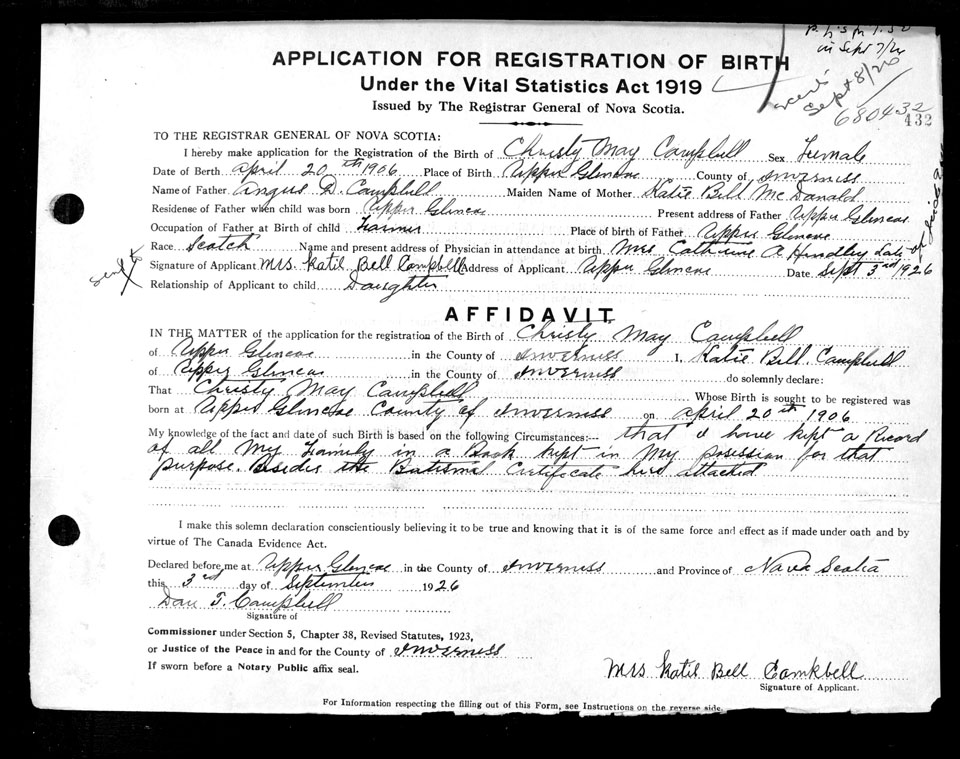 in Sept 7/26
Sept 8/26
680432
432
APPLICATION FOR REGISTRATION OF BIRTH
Under the Vital Statistics Act 1919
Issued by The Registrar General of Nova Scotia.
TO THE REGISTRAR GENERAL OF NOVA SCOTIA:
I hereby make application for the Registration of the Birth of Christy May Campbell Sex Female
Date of Berth April 20th 1906 Place of Birth Upper Glencoe County of Inverness
Name of Father Angus D. Campbell Maiden Name of Mother Katie Bell McDonald
Residense of Father when child was born Upper Glencoe Present address of Father Upper Glencoe
Occupation of Father at Birth of child Farmer Place of birth of Father Upper Glencoe
Race Scotch Name and present address of Physician in attendance at birth Mrs. Catherine A Hendley Late of
Signature of Applicant Mrs. Katie Bell Campbell Address of Applicant Upper Glencoe Date Sept 3rd 1926
Relationship of Applicant to child Daughter
AFFIDAVIT
IN THE MATTER of the application for the registration of the Birth of Christy May Campbell
of Upper Glencoe in the County of Inverness I, Katie Bell Campbell
of Upper Glencoe in the County of Inverness do solemnly declare:
That Christy May Campbell Whose Birth is sought to be registered was
born at Upper Glencoe County of Inverness on April 20th 1906
My knowledge of the fact and date of such Birth is based on the following Circumstances:-- that I have kept a Record
of all My Family in a Book kept in My posession for that
purpose. Besides the Batismal Certificate here attached
I make this solemn declaration conscientiously believing it to be true and knowing that it is of the same force and effect as if made under oath and by
virtue of The Canada Evidence Act.
Declared before me at Upper Glencoe in the County of Inverness and Province of Nova Scotia
this 3rd day of September 1926
Dan T. Campbell
Signature of
Commissioner under Section 5, Chapter 38, Revised Statutes, 1923,
or Justice of the Peace in and for the County of Inverness
If sworn before a Notary Public affix seal.
Mrs Katie Bell Campbell
Signature of Applicant.
For Information respecting the filling out of this Form, see Instructions on the reverse side.